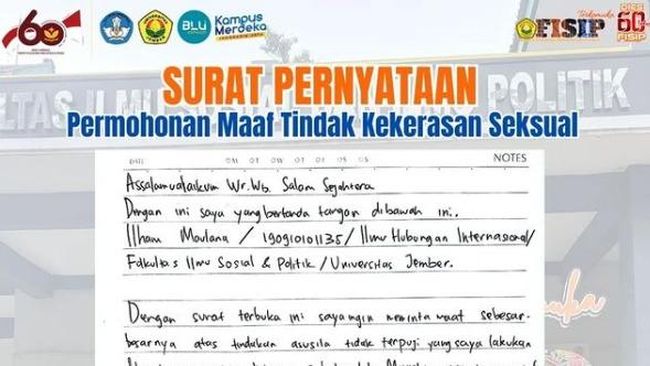 60
BLU
Kampus
Merdeka
INDONESIA JAYA
FISIP
DIES
60
FISIP
LTAS ILMU SOSIAL POLITIK
SURAT PERNYATAAN
Permohonan Maaf Tindak Kekerasan Seksual
DATE
NOTES
Assalamualaikum Wr. Wb. Salam Sejahtera
Dengan ini saya yang bertanda tangan dibawah ini.
Ilham Maulana / 190910101135 / Ilmu Hubungan Internasional/
Fakultas Ilmu Sosial & Politik / Universitas Jember.
Dengan surat terbuka ini saya ingin meminta maaf sebesar-
besarnya atas tindakan asusila tidak terpuji yang saya lakukan